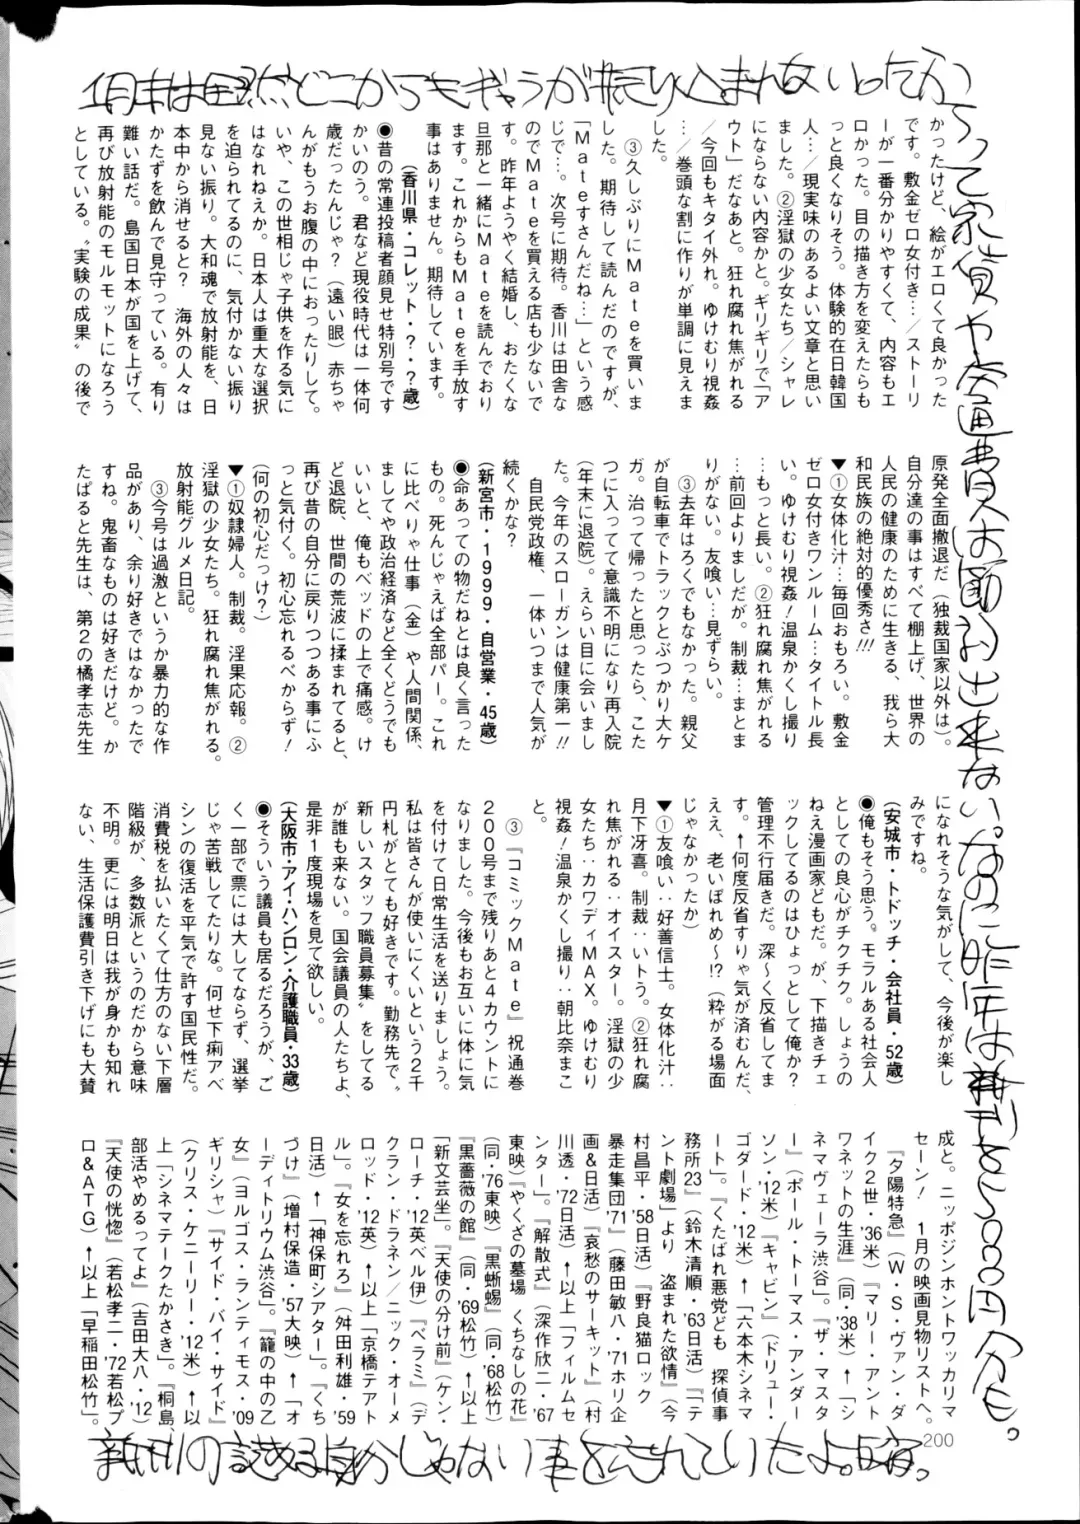 1月末は全然どこからもギャラが振り込まれない。ったか
らって家賃や交通費は節約出来ない。なのに昨年は新刊を5000円分も。
かったけど、絵がエロくて良かった
です。敷金ゼロ女付き…/ストーリ
ーが一番分かりやすくて、内容もエ
ロかった。目の描き方を変えたらも
っと良くなりそう。体験的在日韓国
人…/現実味のあるよい文章と思い
ました。②淫獄の少女たち/シャレ
にならない内容かと。ギリギリで「ア
ウト」だなあと。狂れ腐れ焦がれる
/今回もキタイ外れ。ゆけむり視姦
…/巻頭な割に作りが単調に見えま
した。
③久しぶりにMateを買いま
した。期待して読んだのですが、
「Mateすさんだね…」という感
じで…。次号に期待。香川は田舎な
のでMateを買える店も少ないで
す。昨年ようやく結婚し、おたくな
旦那と一緒にMateを読んでおり
ます。これからもMateを手放す
事はありません。期待しています。
(香川県・コレット・?・?歳)
●昔の常連投稿者顔見せ特別号です
かいのう。君など現役時代は一体何
歳だったんじゃ?(遠い眼)赤ちゃ
んがもうお腹の中におったりして。
いや、この世相じゃ子供を作る気に
はなれねえか。日本人は重大な選択
を迫られてるのに、気付かない振り
見ない振り。大和魂で放射能を、日
本中から消せると? 海外の人々は
かたずを飲んで見守っている。有り
難い話だ。島国日本が国を上げて、
再び放射能のモルモットになろう
としている。〝実験の成果〟の後で
原発全面撤退だ(独裁国家以外は)。
自分達の事はすべて棚上げ、世界の
人民の健康のために生きる、我ら大
和民族の絶対的優秀さ!!!
▼①女体化汁…毎回おもろい。敷金
ゼロ女付きワンルーム…タイトル長
い。ゆけむり視姦!温泉かくし撮り
…もっと長い。②狂れ腐れ焦がれる
…前回よりましだが。制裁…まとま
りがない。友喰い…見ずらい。
③去年はろくでもなかった。親父
が自転車でトラックとぶつかり大ケ
ガ。治って帰ったと思ったら、こた
つに入ってて意識不明になり再入院
(年末に退院)。えらい目に会いまし
た。今年のスローガンは健康第一!!
自民党政権、一体いつまで人気が
続くかな?
(新宮市・1999・自営業・45歳)
●命あっての物だねとは良く言った
もの。死んじゃえば全部パー。これ
に比べりゃ仕事(金)や人間関係、
ましてや政治経済など全くどうでも
いいと、俺もベッドの上で痛感。け
ど退院、世間の荒波に揉まれてると、
再び昔の自分に戻りつつある事にふ
っと気付く。初心忘れるべからず!
(何の初心だっけ?)
▼①奴隷婦人。制裁。淫果応報。②
淫獄の少女たち。狂れ腐れ焦がれる。
放射能グルメ日記。
③今号は過激というか暴力的な作
品があり、余り好きではなかったで
すね。鬼畜なものは好きだけど。か
たぱると先生は、第2の橘孝志先生
になれそうな気がして、今後が楽し
みですね。
(安城市・トドッチ・会社員・52歳)
●俺もそう思う。モラルある社会人
としての良心がチクチク。しょうの
ねえ漫画家どもだ。が、下描きチェ
ックしてるのはひょっとして俺か?
管理不行届きだ。深〜く反省してま
す。↑何度反省すりゃ気が済むんだ、
ええ、老いぼれめ〜!?(粋がる場面
じゃなかったか)
▼①友喰い‥好善信士。女体化汁‥
月下冴喜。制裁‥いトう。②狂れ腐
れ焦がれる‥オイスター。淫獄の少
女たち‥カワディMAX。ゆけむり
視姦!温泉かくし撮り‥朝比奈まこ
と。
③『コミックMate』祝通巻
200号まで残りあと4カウントに
なりました。今後もお互いに体に気
を付けて日常生活を送りましょう。
私は皆さんが使いにくいという2千
円札がとても好きです。勤務先で〝
新しいスタッフ職員募集〟をしてる
が誰も来ない。国会議員の人たちよ、
是非1度現場を見て欲しい。
(大阪市・アイ・ハンロン・介護職員・33歳)
●そういう議員も居るだろうが、ご
く一部で票には大してならず、選挙
じゃ苦戦してたりな。何せ下痢アベ
シンの復活を平気で許す国民性だ。
消費税を払いたくて仕方のない下層
階級が、多数派というのだから意味
不明。更には明日は我が身かも知れ
ない、生活保護費引き下げにも大賛
成と。ニッポジンホントワッカリマ
セーン! 1月の映画見物リストへ。
『夕陽特急』(W・S・ヴァン・ダ
イク2世・'36米)『マリー・アント
ワネットの生涯』(同・'38米)↑「シ
ネマヴェーラ渋谷」。『ザ・マスタ
ー』(ポール・トーマス・アンダー
ソン・'12米)『キャビン』(ドリュー・
ゴダード・'12米)↑「六本木シネマ
ート」。『くたばれ悪党ども 探偵事
務所23』(鈴木清順・'63日活)『テ
ント劇場」より 盗まれた欲情』(今
村昌平・'58日活)『野良猫ロック
暴走集団'71』(藤田敏八・'71ホリ企
画&日活)『哀愁のサーキット』(村
川透・'72日活)↑以上「フィルムセ
ンター」。『解散式』(深作欣二・'67
東映)『やくざの墓場 くちなしの花』
(同・'76東映)『黒蜥蜴』(同・'68松竹)
『黒薔薇の館』(同・'69松竹)↑以上
「新文芸坐」。『天使の分け前』(ケン・
ローチ・'12英ベル伊)『ベラミ』(デ
クラン・ドネラン/ニック・オーメ
ロッド・'12英)↑以上「京橋テアト
ル」。『女を忘れろ』(舛田利雄・'59
日活)↑「神保町シアター」。『くち
づけ』(増村保造・'57大映)↑「オ
ーディトリウム渋谷」。『籠の中の乙
女』(ヨルゴス・ランティモス・'09
ギリシャ)『サイド・バイ・サイド』
(クリス・ケニーリー・'12米)↑以
上「シネマテークたかさき」。『桐島、
部活やめるってよ』(吉田大八・'12)
『天使の恍惚』(若松孝二・'72若松プ
ロ&ATG)↑以上「早稲田松竹」。
200
新刊の読める身分じゃない事を忘れていたよ。